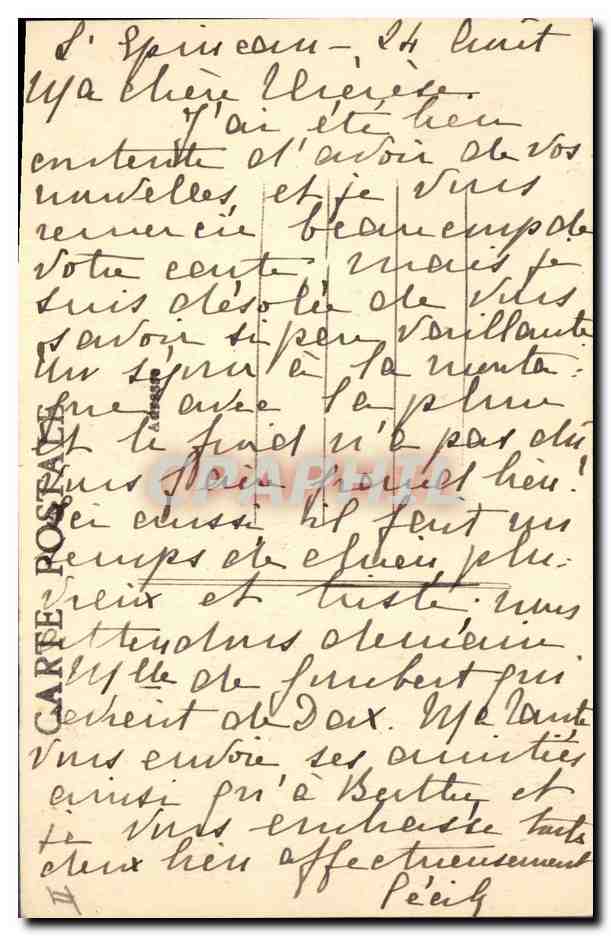 St Epincau - 24 Août
Ma chère Thérèse.
J'ai été bien
contente d'avoir de vos
nouvelles, et je vous
remercie beaucoup de
votre carte, mais je
suis désolée de vous
savoir si peu vaillante.
Un séjour à la monta-
gne avec la pluie
et le froid n'a pas dû
vous faire grand bien!
Ici aussi il fait un
temps de chien plu-
vieux et triste. nous
attendons demain
Mlle de Joubert qui
revient de Dax. Ma Tante
vous envoie ses amitiés
ainsi qu'à Berthe, et
je vous embrasse toutes
deux bien affectueusement
Cécile
CARTE POSTALE
Adresse
CPAPHIL